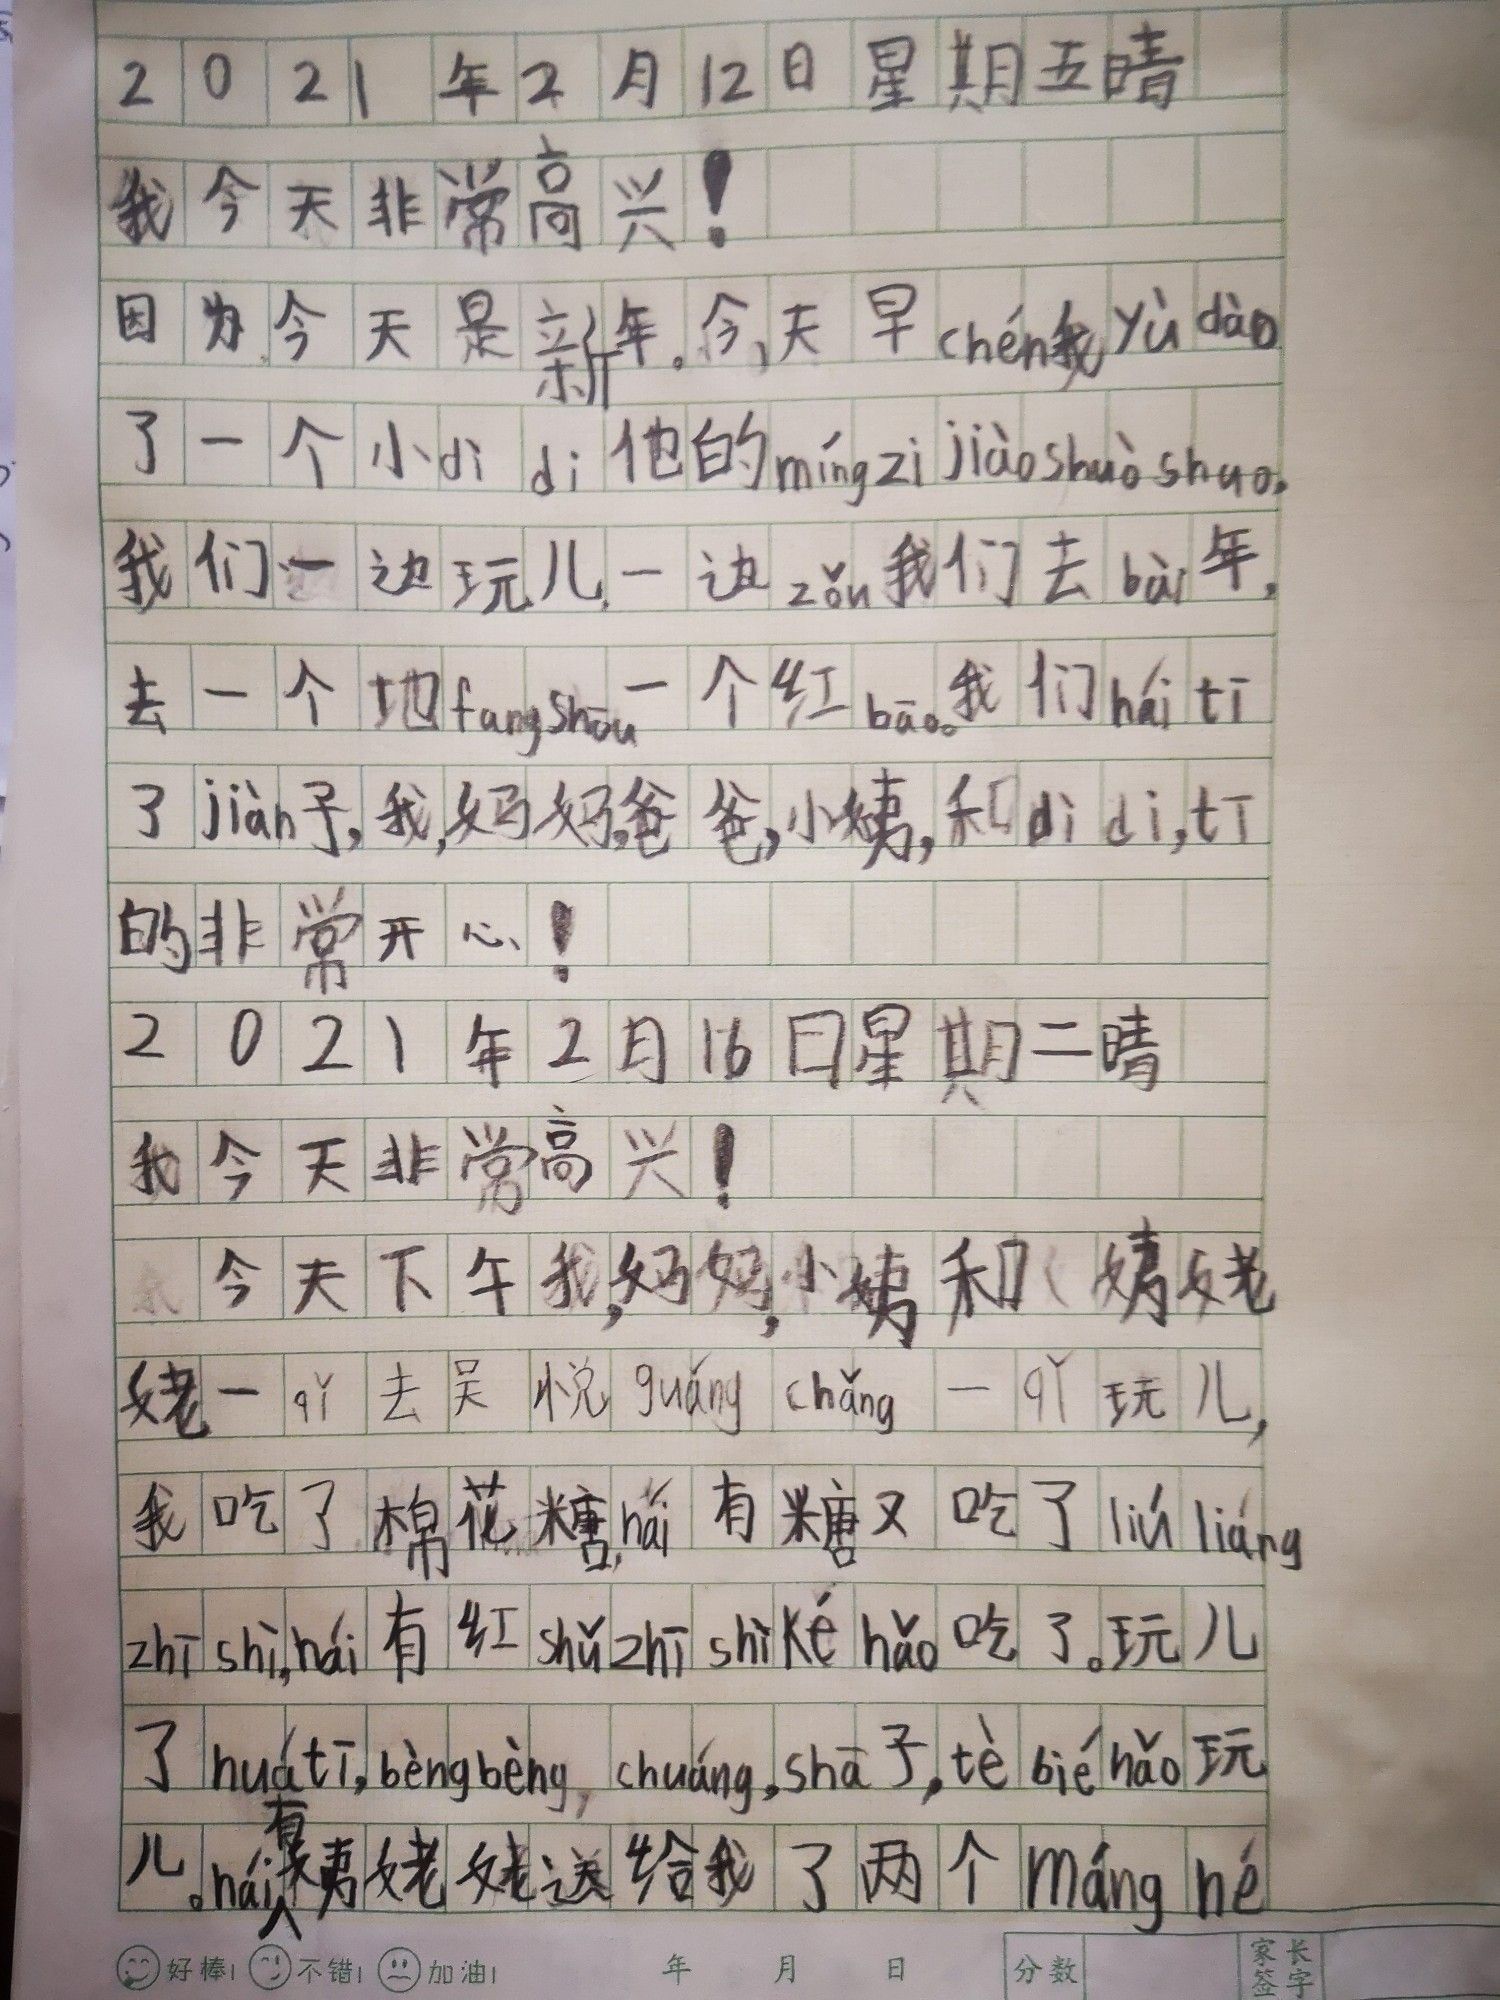 2021年2月12日星期五晴
我今天非常高兴!
因为今天是新年。今天早chén我yù dào
了一个小dì di他的míng zi jiào shuò shuo。
我们一边玩儿一边zǒu我们去bài年,
去一个地fang shōu一个红bāo。我们hái tī
了jiàn子,我,妈妈,爸爸,小姨,和dì di,tī
的非常开心!
2021年2月16日星期二晴
我今天非常高兴!
今天下午我,妈妈,小姨和姨姥
姥一qǐ去吴悦guáng chǎng一qǐ玩儿,
我吃了棉花糖,hái有糖又吃了liú liáng
zhī shì,hái有红shǔ zhī shì ké hǎo吃了。玩儿
了huá tī,bèng bèng,chuáng,shā子,tè bié hǎo玩
儿。hái有姨姥姥送给我了两个máng hé
好棒! 不错! 加油! 年 月 日 分数 家长签字